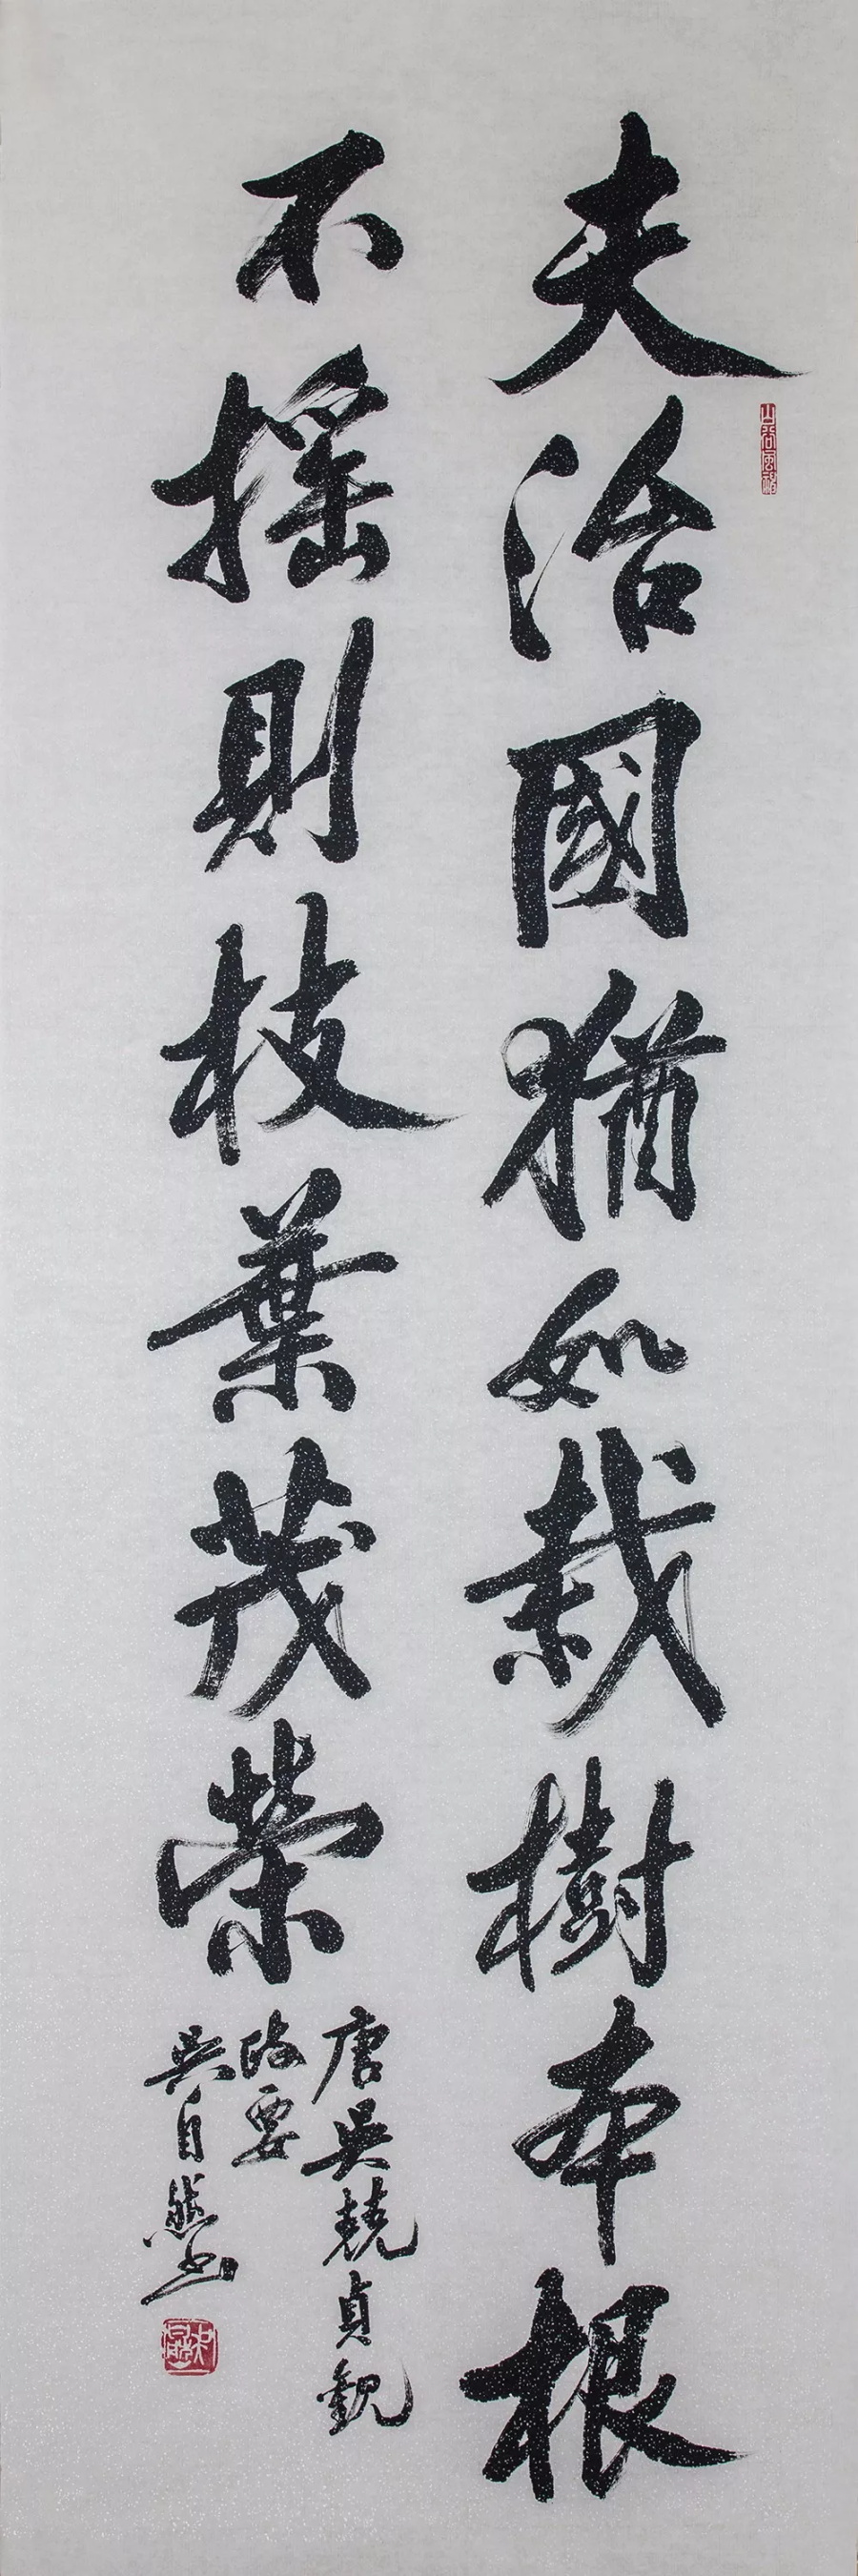 夫治國猶如栽樹本根
不搖則枝葉茂榮
唐吳兢貞觀
政要
吳自然书